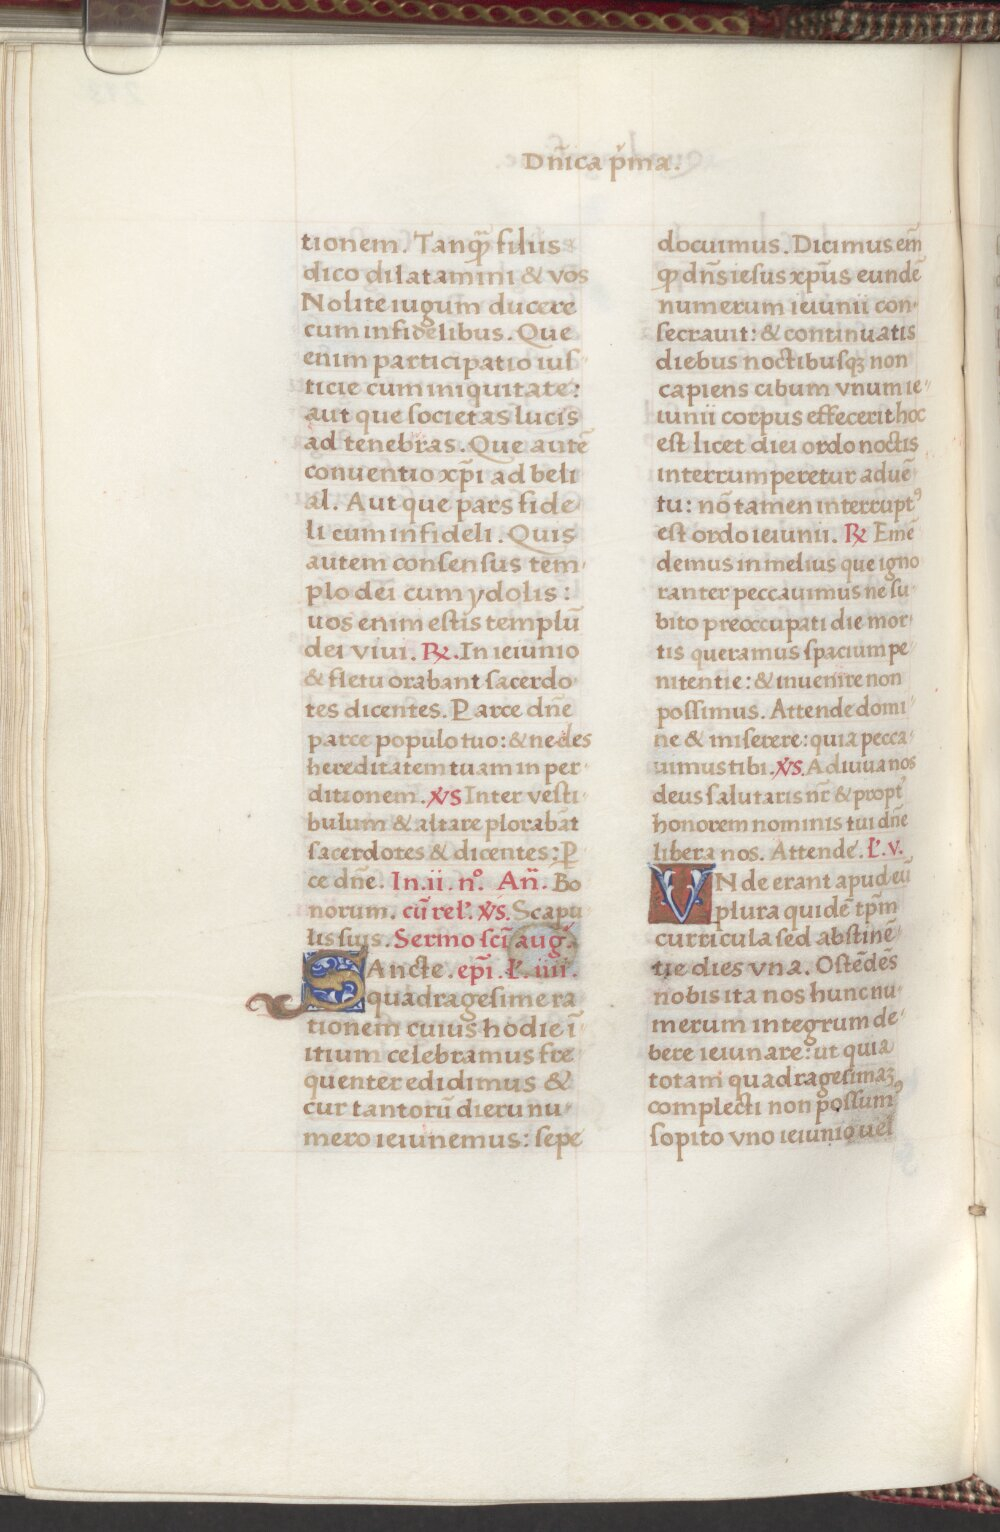 Dn̄ica p̄ma.
tionem. Tanqȝ̄ filiis
dico dilatamini & vos
Nolite iugum ducere
cum infidelibus. Que
enim participatio iuſ-
ticie cum iniquitate:
aut que ſocietas lucis
ad tenebras. Que autē
conuentio xp̄i ad beli
al. Aut que pars fide-
li cum infideli. Quis
autem conſenſus tem-
plo dei cum ydolis:
uos enim eſtis templū
dei viui. ℞. In ieiunio
& fletu orabant ſacerdo-
tes dicentes. Parce dn̄e
parce populo tuo: & ne des
hereditatem tuam in per-
ditionem. ꝟs Inter veſti-
bulum & altare plorabāt
ſacerdotes & dicentes: P
ce dn̄e. In. ii. nº. An̄. Bo
norum. cū rel'. ꝟs. Scapu
lis ſuis. Sermo ſcī aug'.
SAncte. ep̄i. L'. iiii.
quadrageſime ra
tionem cuius hodie ī-
itium celebramus fre
quenter edidimus &
cur tantorū dieru nu-
mero ieiunemus: ſepe
docuimus. Dicimus em̄
qȝ dn̄s ieſus xp̄us eundē
numerum ieiunii con-
ſecrauit: & continuatis
diebus noctibuſqȝ non
capiens cibum vnum ie-
iunii corpus effecerit hoc
eſt licet diei ordo noctis
interrumperetur aduē-
tu: nō tamen interruptꝰ
eſt ordo ieiunii. ℞ Emē
demus in melius que igno
ranter peccauimus ne ſu-
bito preoccupati die mor-
tis queramus ſpacium pe-
nitentie: & inuenire non
poſſimus. Attende domi-
ne & miſerere: quia pecca-
uimus tibi. ꝟs. Adiuua nos
deus ſalutaris nr̄ & propt'
honorem nominis tui dn̄e
libera nos. Attende. L'. v.
VNde erant apud eū
plura quidē tp̄m
curricula ſed abſtinē-
tie dies vna. Oſtēdēs
nobis ita nos hunc nu-
merum integrum de-
bere ieiunare: ut quia
totam quadrageſimaȝ
complecti non poſſumꝰ
ſopito vno ieiunio uel